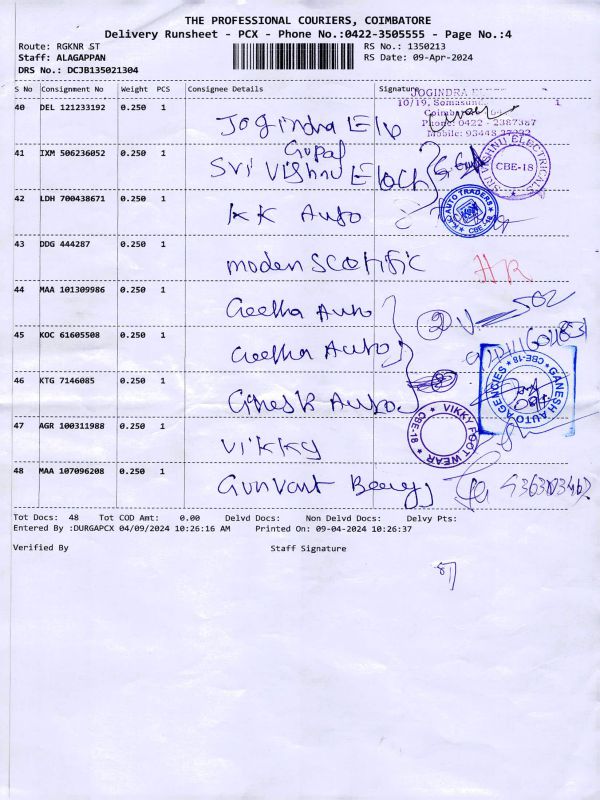 THE PROFESSIONAL COURIERS, COIMBATORE
Delivery Runsheet - PCX - Phone No.:0422-3505555 - Page No.:4
Route: RGKNR ST RS No.: 1350213
Staff: ALAGAPPAN RS Date: 09-Apr-2024
DRS No.: DCJB135021304
S No Consignment No Weight PCS Consignee Details Signature
JOGINDRA
10/19, Somasund
40 DEL 121233192 0.250 1 Jogindra Ele 1
Phone: 0422 - 2387387
Mobile: 93448 37232
Gopal
41 IXM 506236052 0.250 1 Sri Vishnu Elech
SRI VISHNU ELECTRICALS CBE-18
42 LDH 700438671 0.250 1 KK Auto
K.K. AUTO TRADERS CBE-18
43 DDG 444287 0.250 1 moden Scentific HR
44 MAA 101309986 0.250 1 Geetha Auto
45 KOC 61605508 0.250 1 Geetha Auto
46 KTG 7146085 0.250 1 Ganesh Auto
GANESH AUTO AGENCIES CBE-18
47 AGR 100311988 0.250 1 Vikky
VIKKY FOOT WEAR CBE-18
48 MAA 107096208 0.250 1 Gunvant
Tot Docs: 48 Tot COD Amt: 0.00 Delvd Docs: Non Delvd Docs: Delvy Pts:
Entered By :DURGAPCX 04/09/2024 10:26:16 AM Printed On: 09-04-2024 10:26:37
Verified By Staff Signature